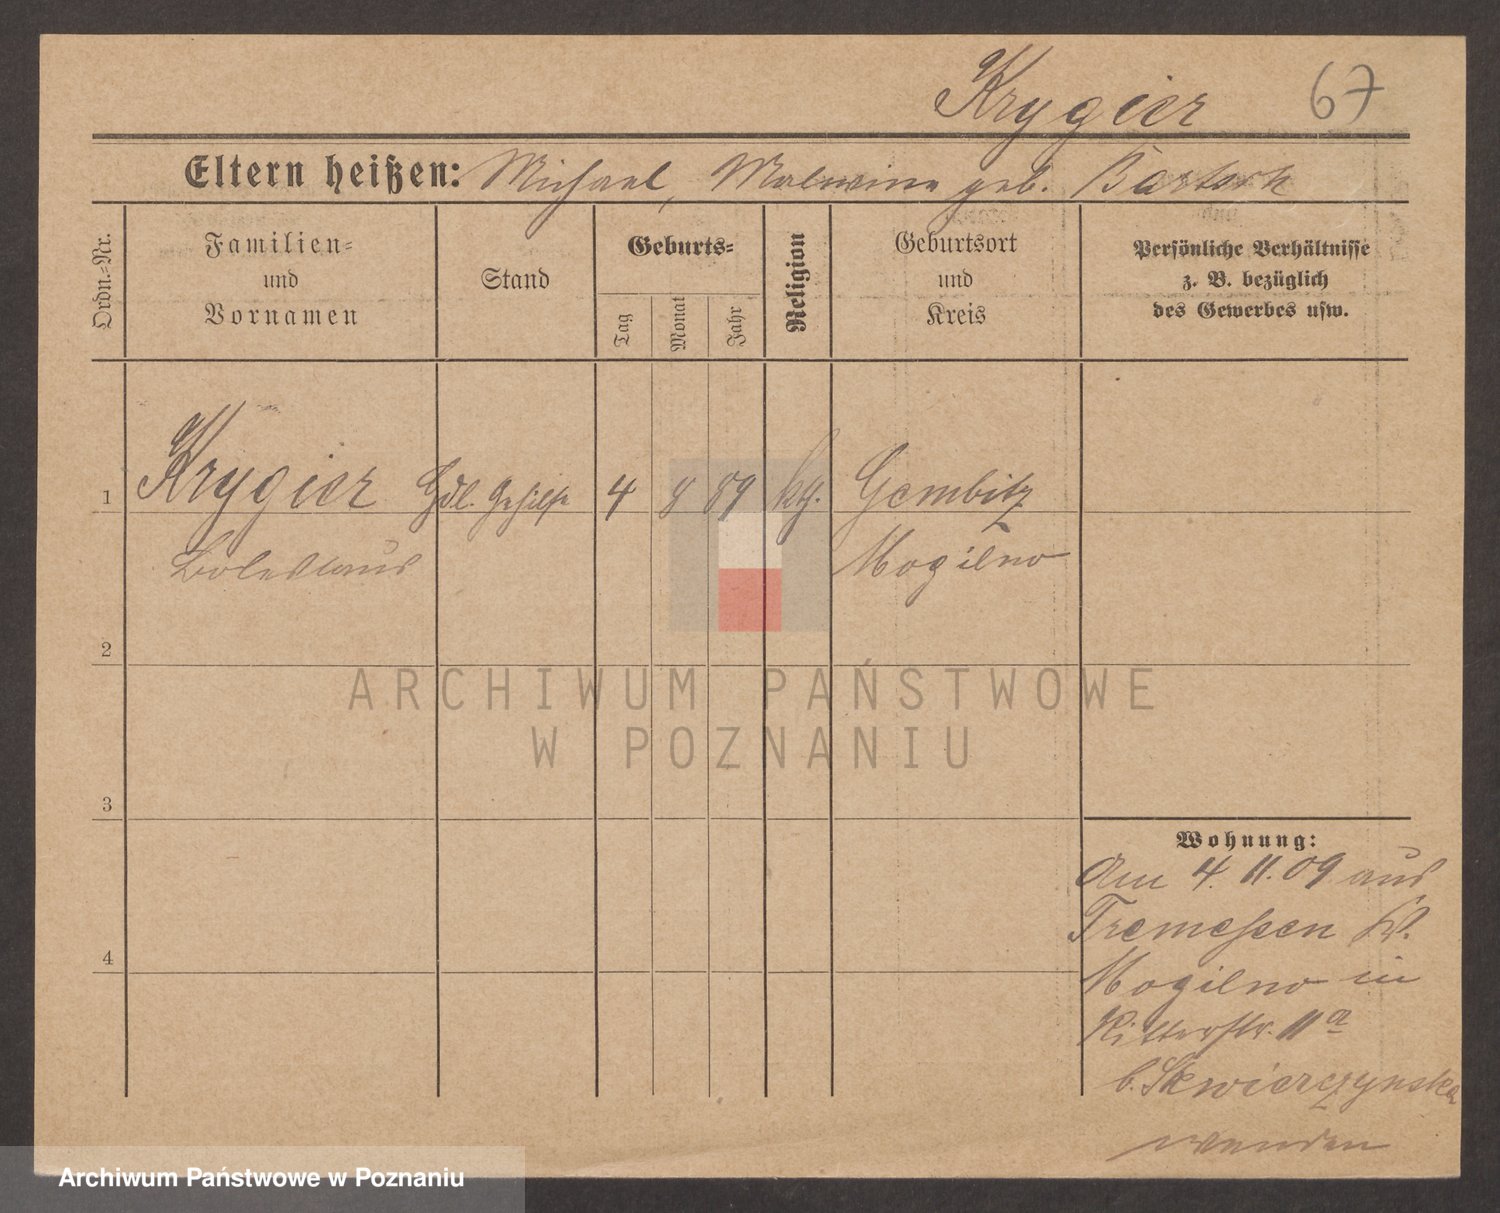 Krygier 67
Eltern heißen: Michael, Malwine geb. Bartsch
Ordn.-Nr.
Familien-
und
Vornamen
Stand
Geburts-
Tag
Monat
Jahr
Religion
Geburtsort
und
Kreis
Persönliche Verhältnisse
z. B. bezüglich
des Gewerbes usw.
1 Krygier Hdl. Gehilfe 4 8 89 kth. Gembitz
Boleslaus Mogilno
2
3
4
Wohnung:
Am 4. 11. 09 aus
Tremessen K.
Mogilno in
Ritterstr. 11a
b. Skwierczynska
wenden
ARCHIWUM PAŃSTWOWE
W POZNANIU
Archiwum Państwowe w Poznaniu